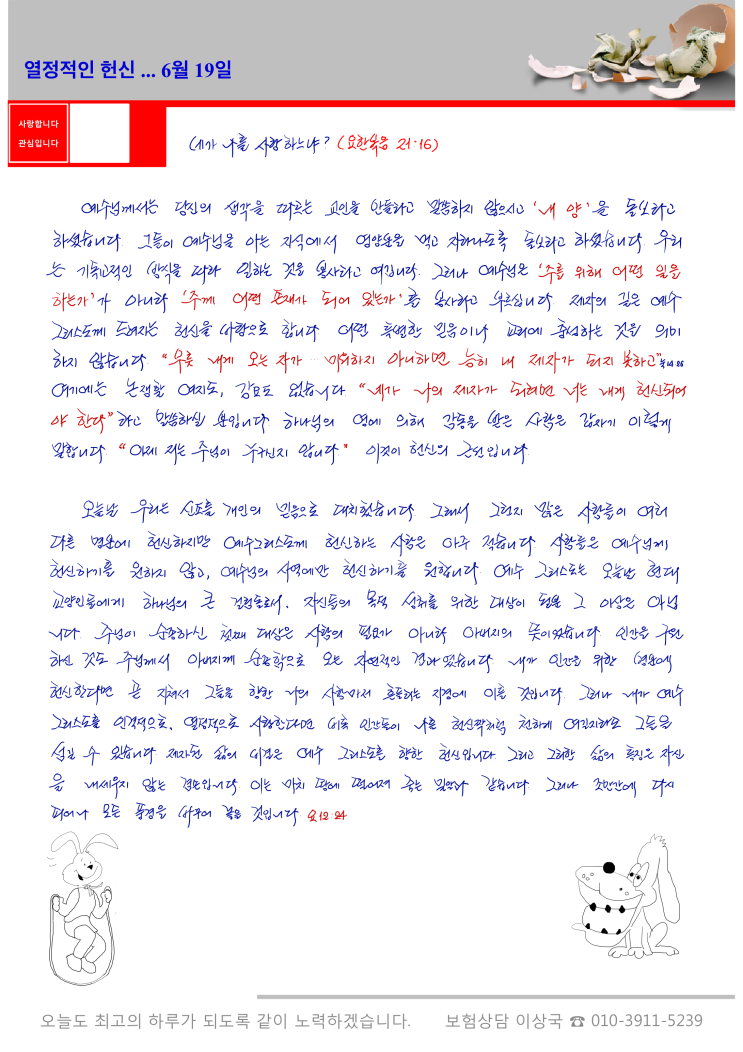 열정적인 헌신 ... 6월 19일
사랑합니다
관심입니다
네가 나를 사랑하느냐? (요한복음 21:16)
예수님께서는 당신의 생각을 따르는 교인을 만들라고 말씀하지 않으시고 '내 양'을 돌보라고
하셨습니다. 그들이 예수님을 아는 지식에서 영양분을 먹고 자라나도록 돌보라고 하셨습니다. 우리
는 기독교적인 방식을 따라 일하는 것을 봉사라고 여깁니다. 그러나 예수님은 '주를 위해 어떤 일을
하는가'가 아니라 '주께 어떤 존재가 되어 있는가'를 봉사라고 부르십니다. 제자의 길은 예수
그리스도께 드려지는 헌신을 바탕으로 합니다. 어떤 특별한 믿음이나 교리에 충성하는 것을 의미
하지 않습니다. "무릇 내게 오는 자가 … 미워하지 아니하면 능히 내 제자가 되지 못하고" 눅14:26
여기에는 논쟁할 여지도, 강요도 없습니다. "네가 나의 제자가 되려면 너는 내게 헌신되어
야 한다"라고 말씀하실 뿐입니다. 하나님의 영에 의해 감동을 받은 사람은 갑자기 이렇게
말합니다. "이제 저는 주님이 누구신지 압니다" 이것이 헌신의 근원입니다.
오늘날 우리는 신조를 개인의 믿음으로 대치했습니다. 그래서 그런지 많은 사람들이 여러
다른 명분에 헌신하지만 예수그리스도께 헌신하는 사람은 아주 적습니다. 사람들은 예수님께
헌신하기를 원하지 않고, 예수님의 사역에만 헌신하기를 원합니다. 예수 그리스도는 오늘날 현대
교양인들에게 하나님의 큰 걸림돌로서, 자신들의 목적 성취를 위한 대상이 될뿐 그 이상은 아닙
니다. 주님이 순종하신 첫째 대상은 사람의 필요가 아니라 아버지의 뜻이었습니다. 인간을 구원
하신 것도 주님께서 아버지께 순종함으로 오는 자연적인 결과였습니다. 내가 인간을 위한 명분에
헌신한다면 곧 지쳐서 그들을 향한 나의 사랑마저 흔들리는 지경에 이를 것입니다. 그러나 내가 예수
그리스도를 인격적으로, 열정적으로 사랑한다면 비록 인간들이 나를 헌신짝처럼 천하게 여길지라도 그들을
섬길 수 있습니다. 제자된 삶의 비결은 예수 그리스도를 향한 헌신입니다. 그리고 그러한 삶의 특징은 자신
을 내세우지 않는 겸손입니다. 이는 마치 땅에 떨어져 죽는 밀알과 같습니다. 그러나 조만간에 다시
피어나 모든 풍경을 바꾸어 놓을 것입니다. 요12:24
오늘도 최고의 하루가 되도록 같이 노력하겠습니다. 보험상담 이상국 ☎ 010-3911-5239